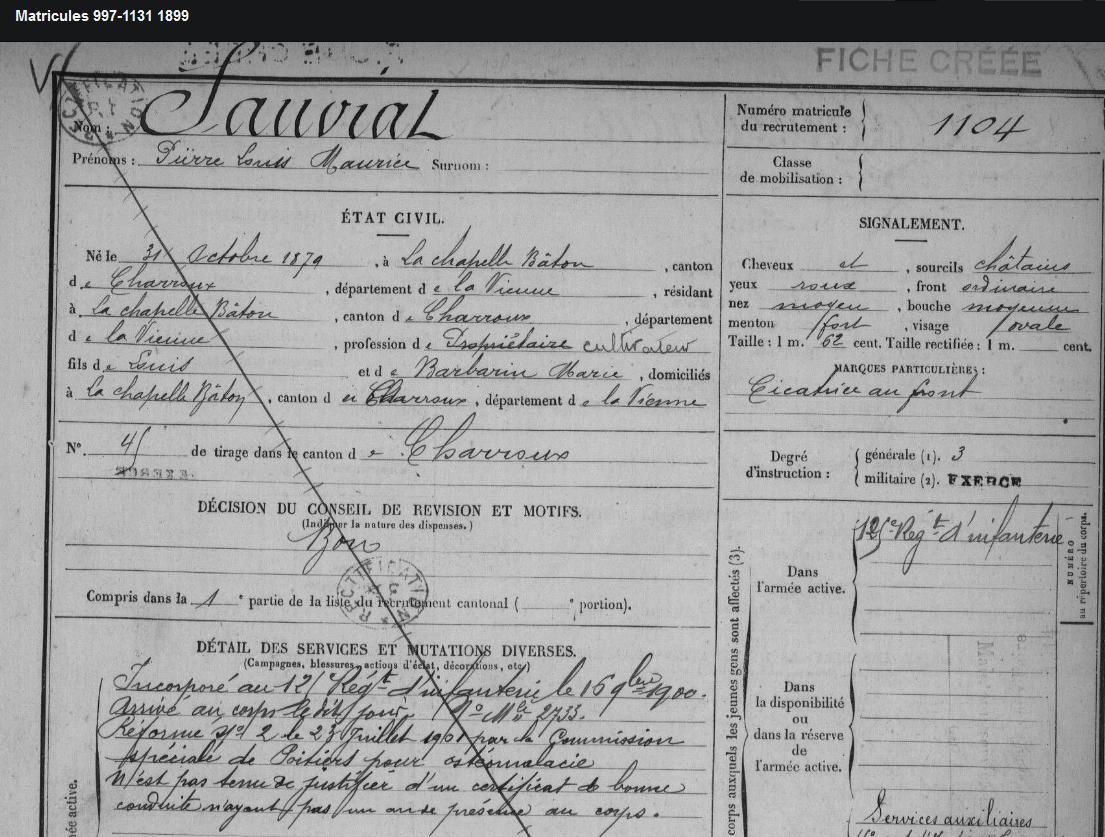 Matricules 997-1131 1899
FICHE CRÉÉE
RECTIFICATION
Nom : Sauvial
Prénoms : Pierre Louis Maurice Surnom :
Numéro matricule
du recrutement : 1104
Classe
de mobilisation :
ÉTAT CIVIL.
Né le 31 Octobre 1879, à La chapelle Bâton, canton
de Charroux, département de la Vienne, résidant
à La chapelle Bâton, canton de Charroux, département
de la Vienne, profession de Propriétaire cultivateur
fils de Louis et de Barbarin Marie, domiciliés
à La chapelle Bâton, canton de Charroux, département de la Vienne
N° 45 de tirage dans le canton de Charroux
SIGNALEMENT.
Cheveux et, sourcils châtains
yeux roux, front ordinaire
nez moyen, bouche moyenne
menton fort, visage ovale
Taille : 1 m. 62 cent. Taille rectifiée : 1 m. cent.
MARQUES PARTICULIÈRES :
Cicatrice au front
Degré
d'instruction :
générale (1). 3
militaire (2). EXERCE
DÉCISION DU CONSEIL DE REVISION ET MOTIFS.
(Indiquer la nature des dispenses.)
Bon
RECTIFICATION
Compris dans la 1e partie de la liste du recrutement cantonal ( e portion).
DÉTAIL DES SERVICES ET MUTATIONS DIVERSES.
(Campagnes, blessures, actions d'éclat, décorations, etc.)
Incorporé au 125 Régt d'infanterie le 16 9bre 1900.
Arrivé au corps le dit jour. No Mle 2733.
Réformé No 2 le 23 Juillet 1901 par la Commission
spéciale de Poitiers pour ostéomalacie
N'est pas tenu de justifier d'un certificat de bonne
conduite n'ayant pas un an de présence au corps.
ée active.
corps auxquels les jeunes gens sont affectés (3).
Dans
l'armée active.
125e Régt d'infanterie
NUMÉRO
au répertoire du corps.
Dans
la disponibilité
ou
dans la réserve
de
l'armée active.
Services auxiliaires